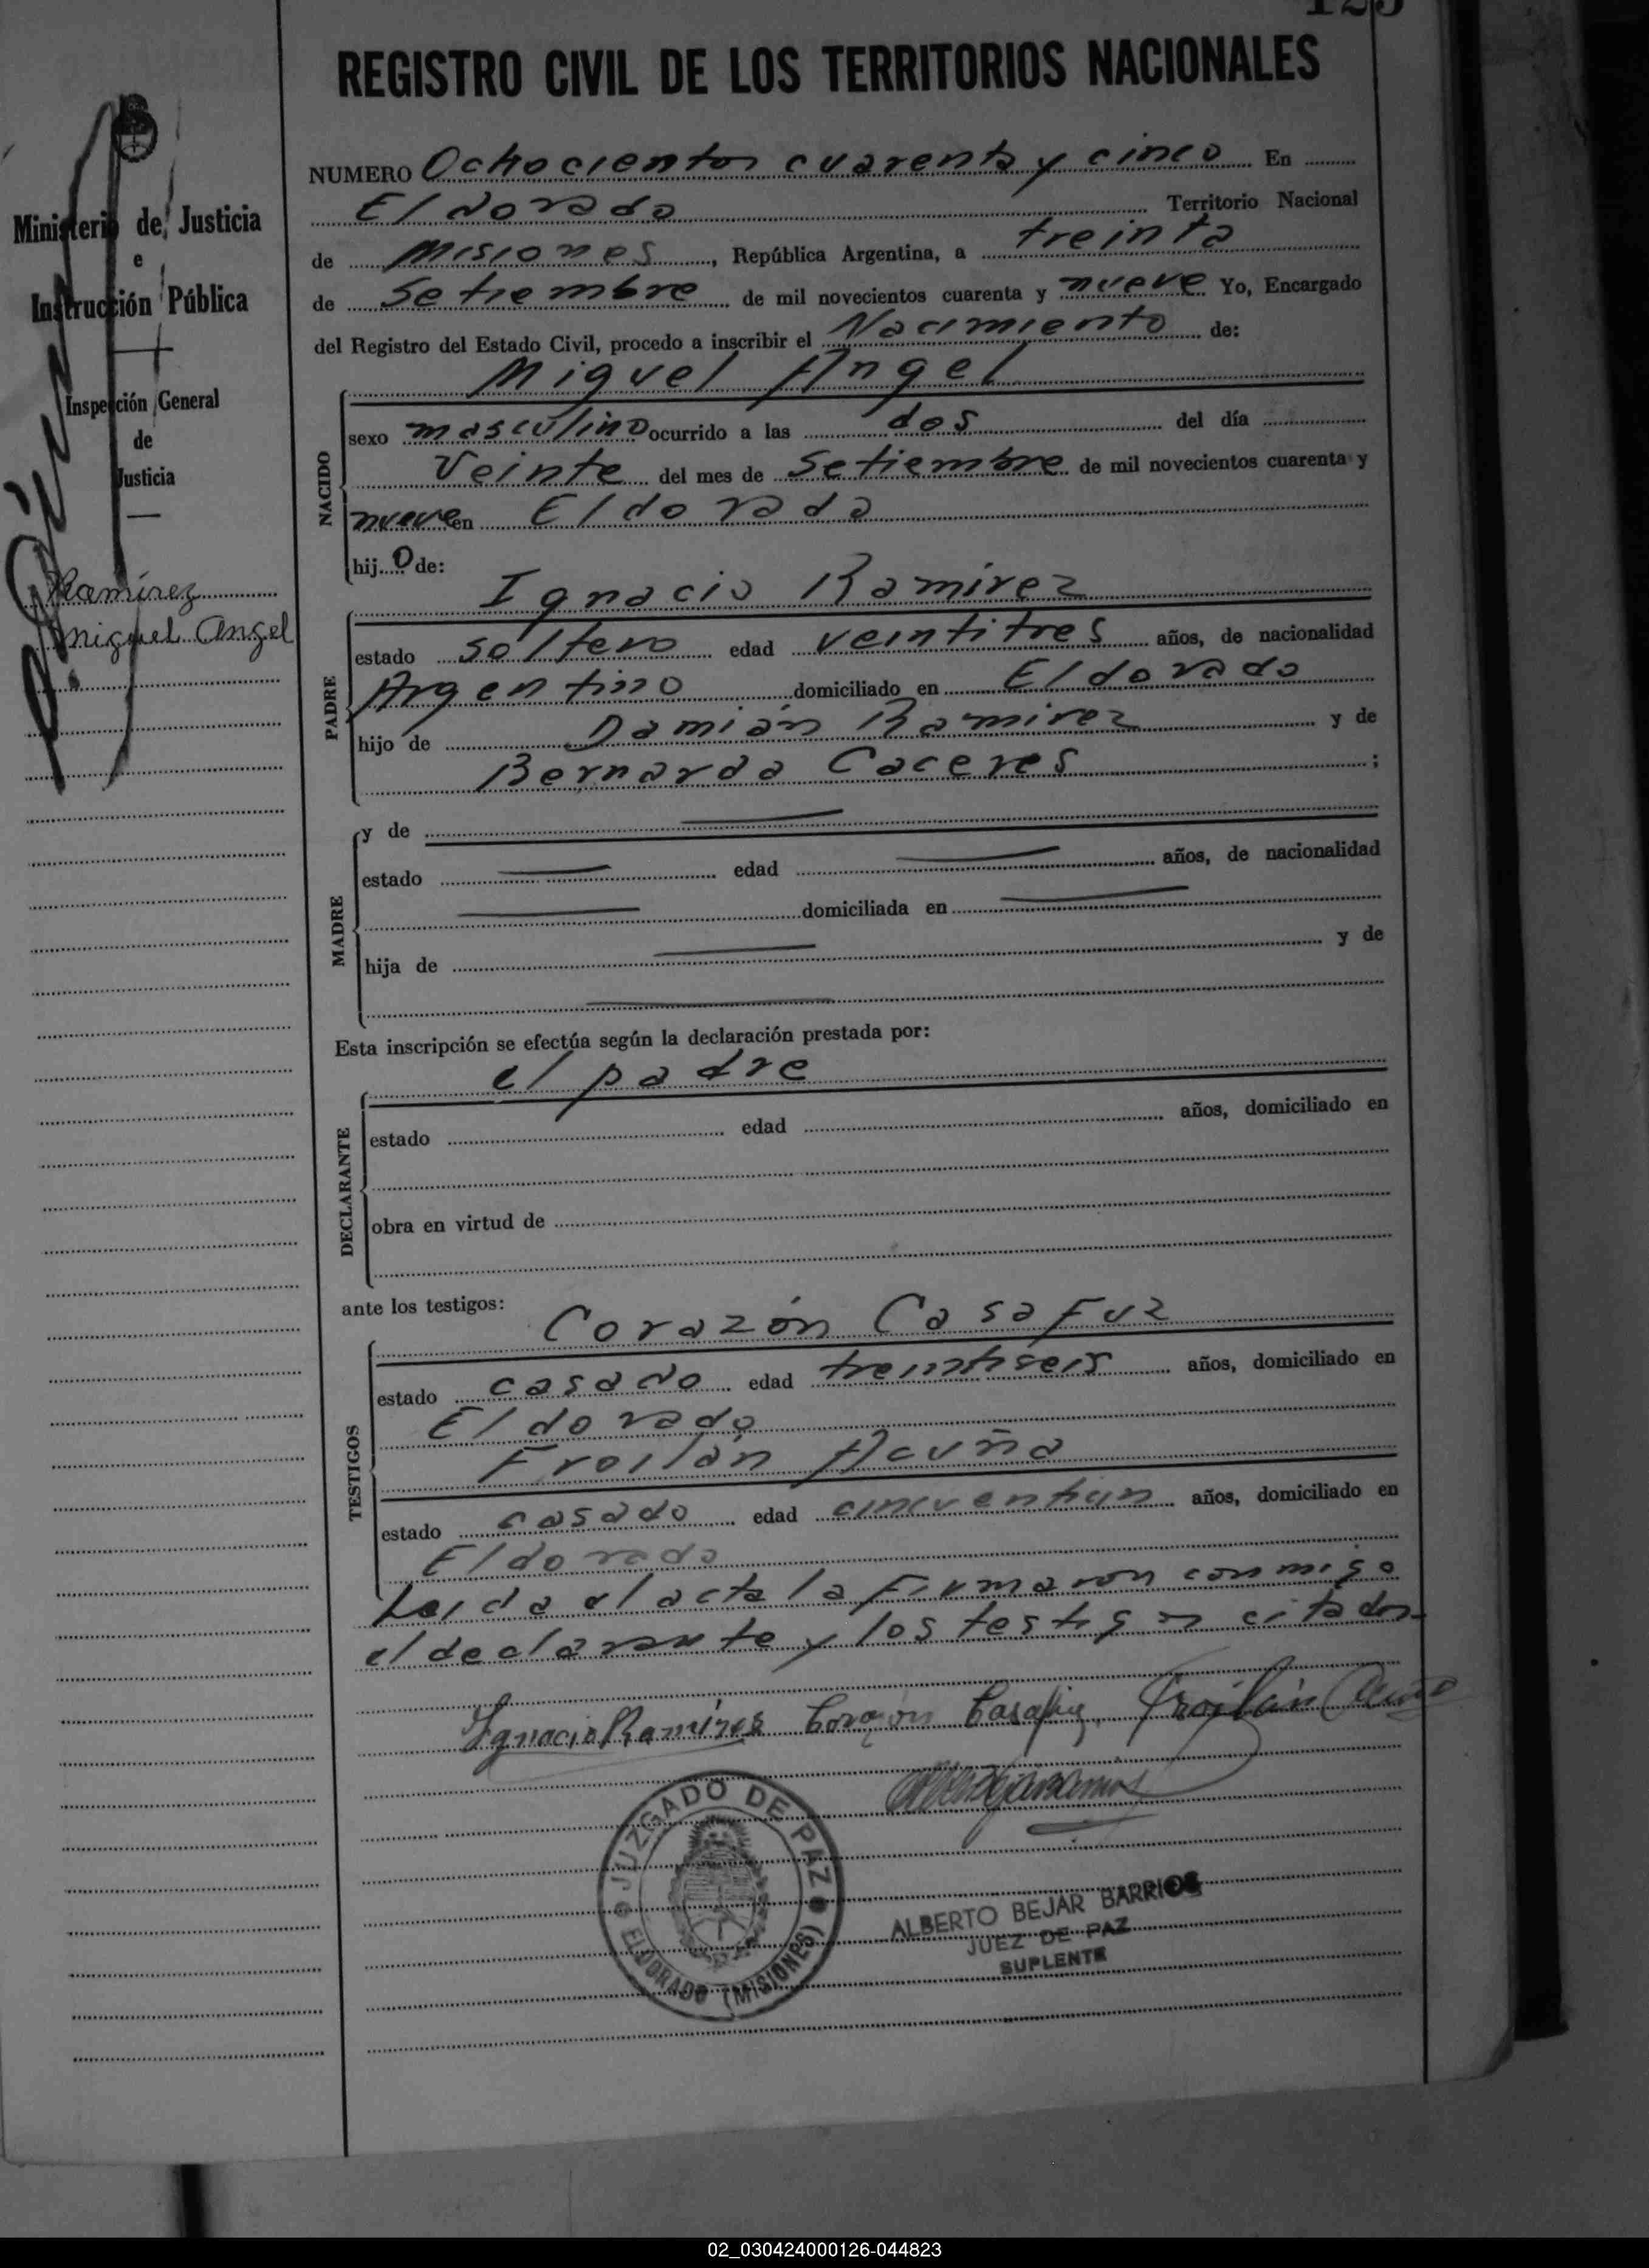 125
REGISTRO CIVIL DE LOS TERRITORIOS NACIONALES
Ministerio de Justicia
e
Instrucción Pública
Inspección General
de
Justicia
Ramírez
Miguel Angel
NUMERO Ochocientos cuarenta y cinco En
Eldorado Territorio Nacional
de Misiones, República Argentina, a treinta
de Setiembre de mil novecientos cuarenta y nueve Yo, Encargado
del Registro del Estado Civil, procedo a inscribir el Nacimiento de:
Miguel Angel
NACIDO
sexo masculino ocurrido a las dos del día
Veinte del mes de Setiembre de mil novecientos cuarenta y
nueve en Eldorado
hij o de:
Ignacio Ramírez
PADRE
estado soltero edad veintitres años, de nacionalidad
Argentino domiciliado en Eldorado
hijo de Damián Ramirez y de
Bernarda Caceres ;
MADRE
y de
estado edad años, de nacionalidad
domiciliada en
hija de y de
Esta inscripción se efectúa según la declaración prestada por:
el padre
DECLARANTE
estado edad años, domiciliado en
obra en virtud de
ante los testigos:
Corazón Casafuz
TESTIGOS
estado casado edad treintiseis años, domiciliado en
Eldorado
Froilán Acuña
estado casado edad cincuentiun años, domiciliado en
Eldorado
Leida el acta la firmaron conmigo
el declarante y los testigos citados-
Ignacio Ramírez Corazon Casafuz Froilán Acuña
JUZGADO DE PAZ
ELDORADO (MISIONES)
ALBERTO BEJAR BARRIOS
JUEZ DE PAZ
SUPLENTE
02_030424000126-044823